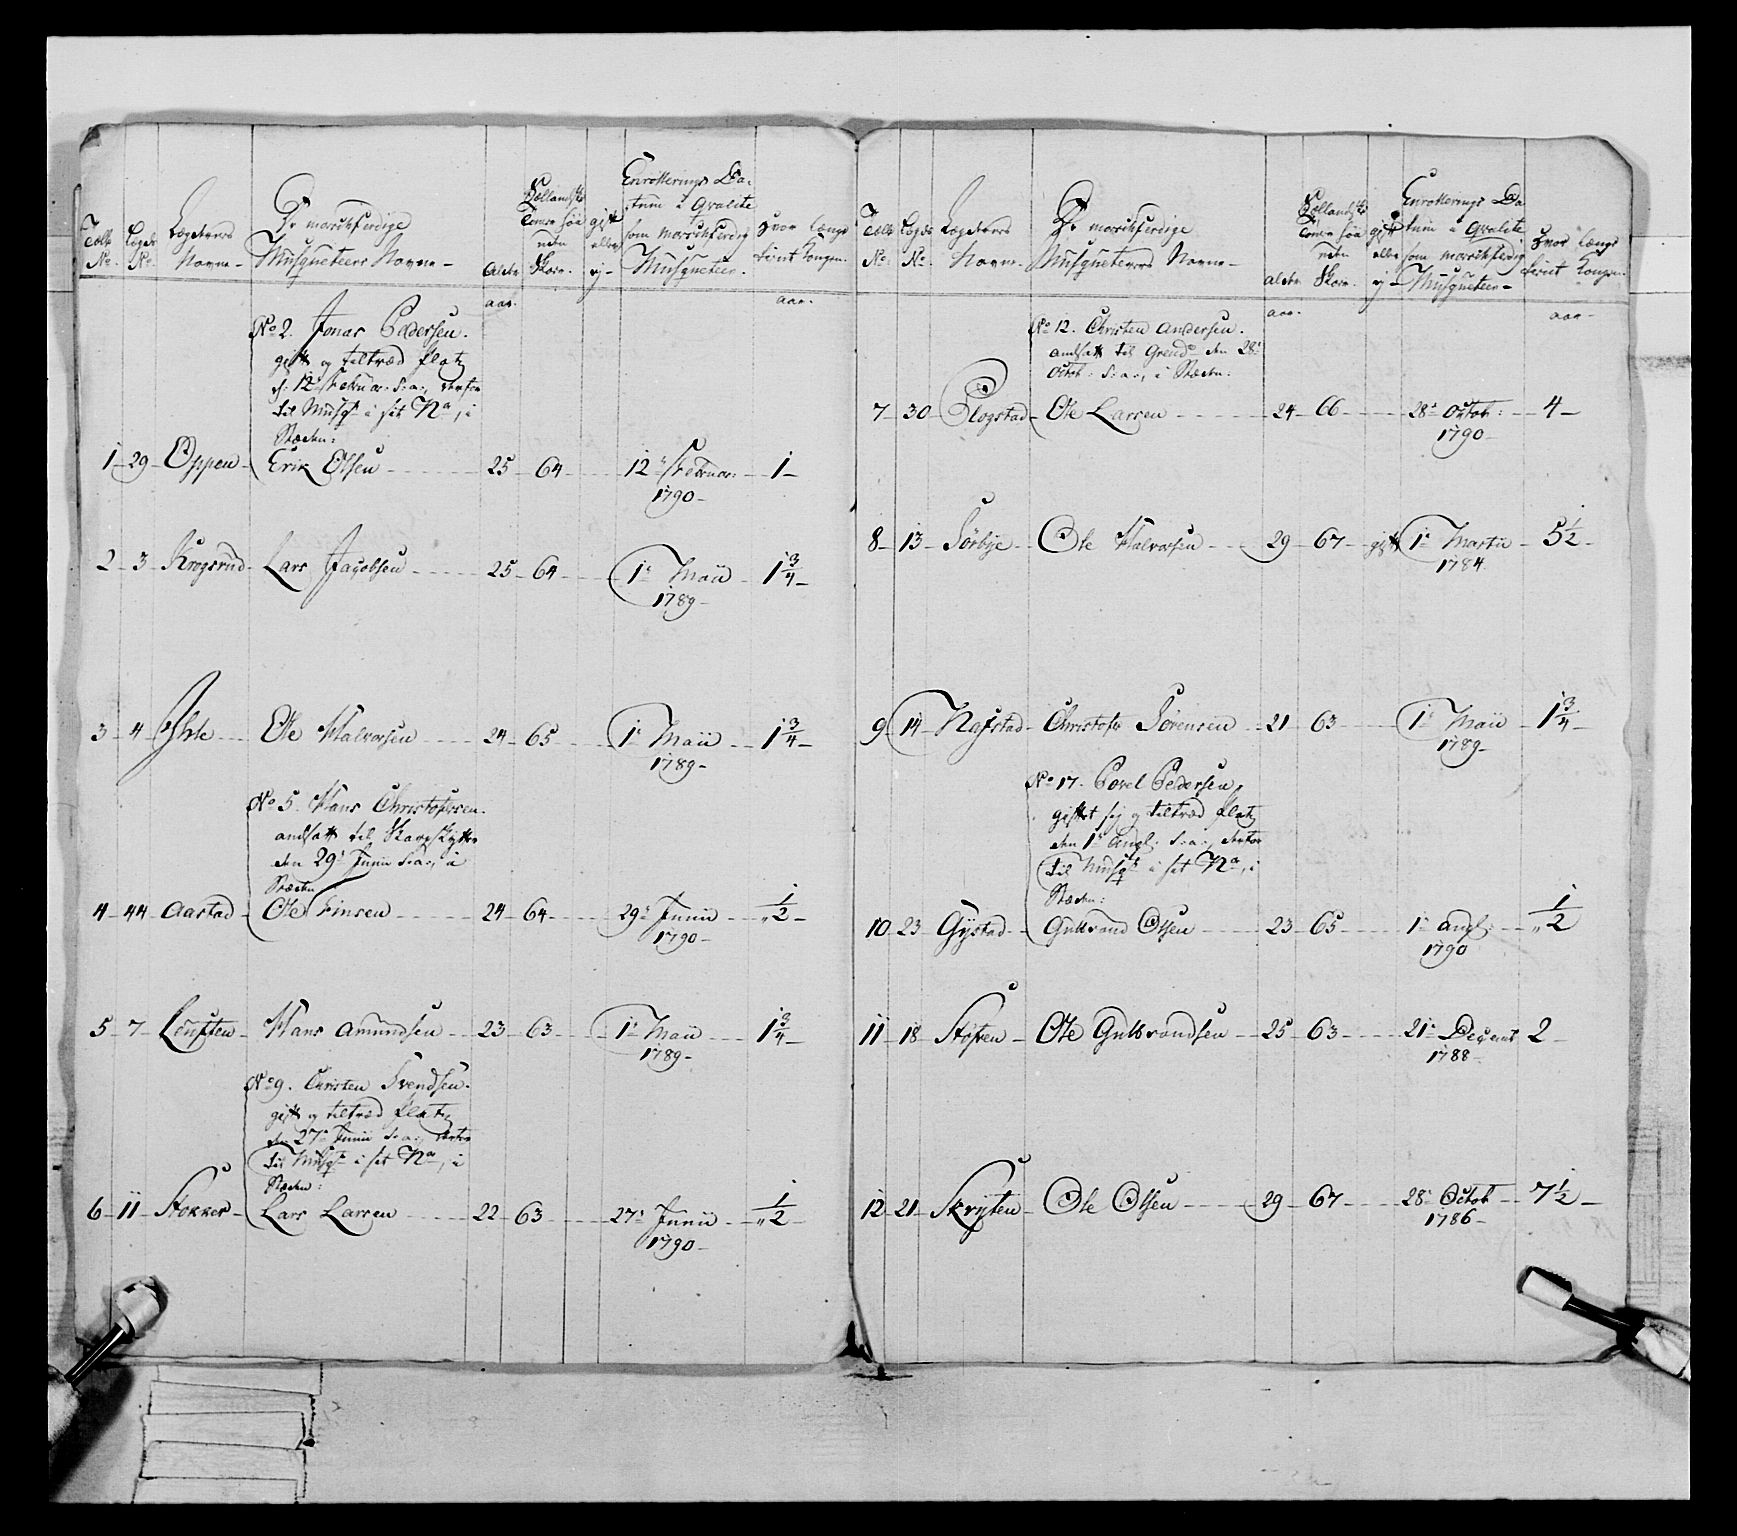 Tælle No.
Lægdets No.
Lægdernes Navne
De marschferdige Musqueteers Navne
Alder
aar.
Sællandske Tomer høie uden Skoe.
gift eller ej
Enrollerings Datum i Qvalite som marschferdig Musqueteer.
Hvor længe tient Kongen.
aar.
No 2. Jonas Pedersen.
gift og tiltræd Platz
d: 12' Februar: s:a:, derfor
til Musqt i sit Na, i
Stæden:
1 29 Oppen Erik Olsen 25 64 12' Februar: 1790 1
2 3 Krogsrud Lars Jacobsen 25 64 1' Maii 1789 1 3/4
3 4 Ihle Ole Halvorsen 24 65 1' Maii 1789 1 3/4
No 5. Hans Christophersen.
andsatt til Skarpskytter
den 29' Junii s:a:, i
Stæden
4 44 Aarstad Ole Finsen 24 64 29' Junii 1790 " 1/2
5 7 Leuften Hans Amundsen 23 63 1' Maii 1789 1 3/4
No 9. Christen Svendsen.
gift og tiltræd Platz
den 27' Junii s:a:, derfor
til Musqt i sit Na, i
Stæden:
6 11 Stokker Lars Larsen 22 63 27' Junii 1790 " 1/2
Tælle No.
Lægdets No.
Lægdernes Navne
De marschferdige Musqueteerers Navne
Alder
aar.
Sællandske Tomer høie uden Skoe.
gift eller ej
Enrollerings Datum i Qvalite som marschferdig Musqueteer
Hvor længe tient Kongen.
aar
No 12. Christen Andersen.
andsatt til Grend: den 28'
Octob: s:a:, i Stæden:
7 30 Plogstad Ole Larsen 24 66 28' Octob: 1790 4
8 13 Sörbye Ole Halvorsen 29 67 gift 1' Martii 1784 5 1/2
9 14 Nafstad Christofer Sörensen 21 63 1' Maii 1789 1 3/4
No 17. Povel Pedersen,
giftet sig og tiltræd Platz
den 1' Augl: s:a:, derfor
til Musqt i sit Na, i
Stæden:
10 23 Gystad Gulbrand Olsen 23 65 1' Augl: 1790 " 1/2
11 18 Støfren Ole Gulbrandsen 25 63 21' Decemb 1788 2
12 21 Skryten Ole Olsen 29 67 28' Octob 1786 7 1/2